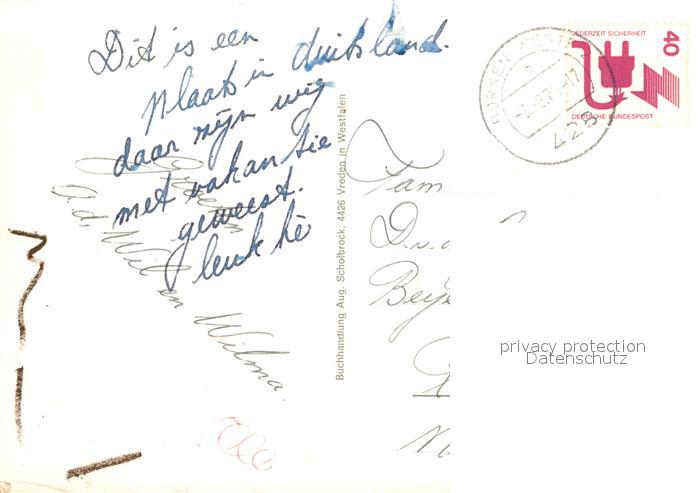 Dit is een
plaats in duitsland.
daar mijn wij
met vakantie
geweest.
leuk hè
Groeten
a.d. Wil en Wilma.
Buchhandlung Aug. Scholbrock, 4426 Vreden in Westfalen
JEDERZEIT SICHERHEIT
40
DEUTSCHE BUNDESPOST
BORKEN
428
Fam
D.v.
privacy protection
Datenschutz